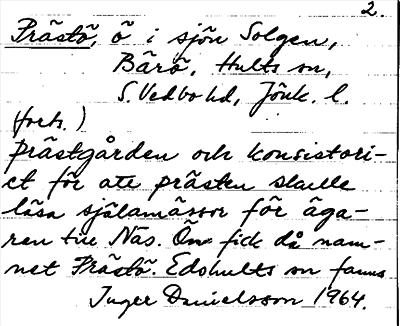 2.
Prästö, ö i sjön Solgen,
Bärö, Hults sn,
S. Vedbo hd, Jönk. l.
(forts.)
prästgården och konsistori-
et för att prästen skulle
läsa själamässor för äga-
ren till Näs. Ön fick då nam-
net Prästö. Edshults sn fanns
Inger Danielsson 1964.